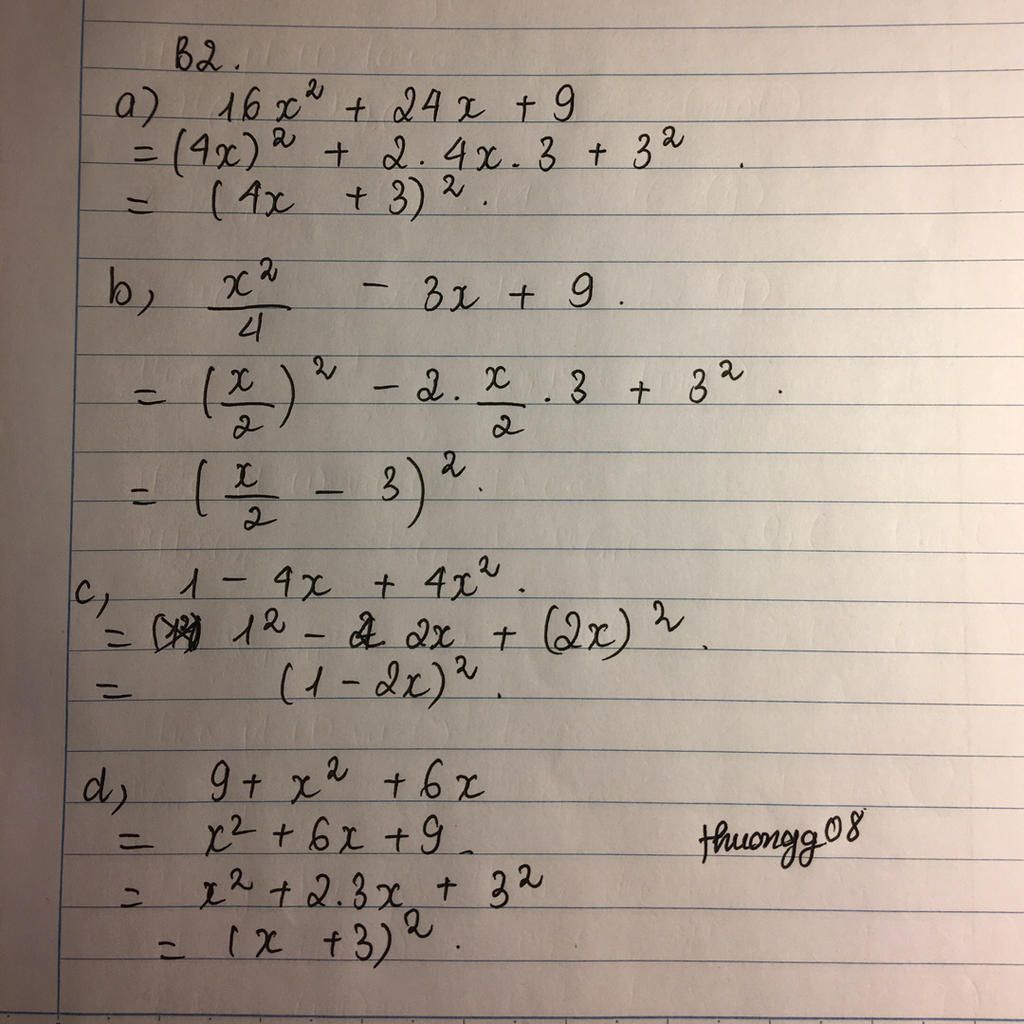 B2.
a) 16x² + 24x + 9
= (4x)² + 2.4x.3 + 3² .
= (4x + 3)².
b, x²/4 - 3x + 9.
= (x/2)² - 2.x/2.3 + 3².
= (x/2 - 3)².
c, 1 - 4x + 4x².
= 1² - 2 2x + (2x)².
= (1 - 2x)².
d, 9 + x² + 6x
= x² + 6x + 9
= x² + 2.3x + 3²
= (x + 3)².
thuongg08